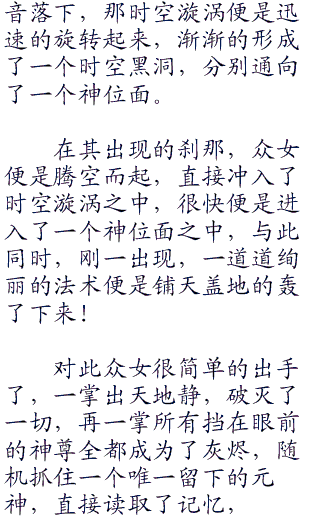 音落下，那时空漩涡便是迅
速的旋转起来，渐渐的形成
了一个时空黑洞，分别通向
了一个神位面。
在其出现的刹那，众女
便是腾空而起，直接冲入了
时空漩涡之中，很快便是进
入了一个神位面之中，与此
同时，刚一出现，一道道绚
丽的法术便是铺天盖地的轰
了下来！
对此众女很简单的出手
了，一掌出天地静，破灭了
一切，再一掌所有挡在眼前
的神尊全都成为了灰烬，随
机抓住一个唯一留下的元
神，直接读取了记忆，